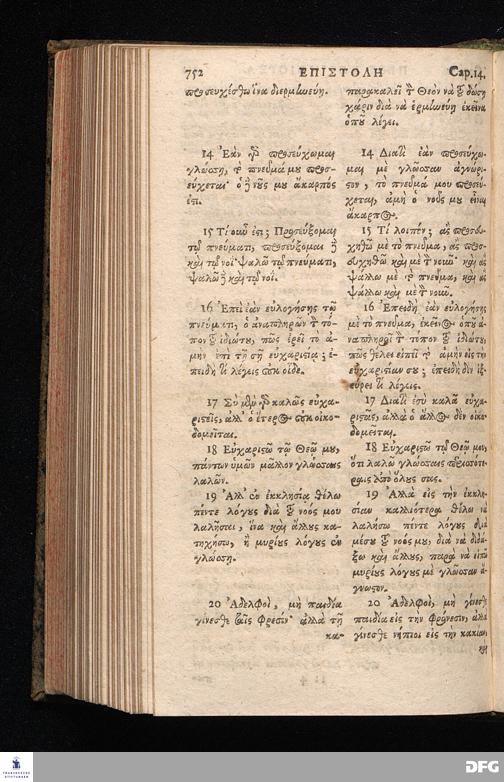 752 ΕΠΙΣΤΟΛΗ Cap.14.
προσευχέσθω ἵνα διερμηνεύῃ.
14 Ἐὰν γὰρ προσεύχωμαι
γλώσσῃ, τὸ πνεῦμά μου προσ-
εύχεται· ὁ δὲ νοῦς μου ἄκαρπός
ἐστι.
15 Τί οὖν ἐστι; Προσεύξομαι
τῷ πνεύματι, προσεύξομαι δὲ
καὶ τῷ νοΐ· ψαλῶ τῷ πνεύματι,
ψαλῶ δὲ καὶ τῷ νοΐ.
16 Ἐπεὶ ἐὰν εὐλογήσῃς τῷ
πνεύματι, ὁ ἀναπληρῶν τὸν τό-
πον τοῦ ἰδιώτου, πῶς ἐρεῖ τὸ ἀ-
μὴν ἐπὶ τῇ σῇ εὐχαριστίᾳ; ἐ-
πειδὴ τί λέγεις οὐκ οἶδε.
17 Σὺ μὲν γὰρ καλῶς εὐχα-
ριστεῖς, ἀλλ' ὁ ἕτερος οὐκ οἰκο-
δομεῖται.
18 Εὐχαριστῶ τῷ Θεῷ μου,
πάντων ὑμῶν μᾶλλον γλώσσαις
λαλῶν.
19 Ἀλλ' ἐν ἐκκλησίᾳ θέλω
πέντε λόγους διὰ τοῦ νοός μου
λαλῆσαι, ἵνα καὶ ἄλλους κα-
τηχήσω, ἢ μυρίους λόγους ἐν
γλώσσῃ.
20 Ἀδελφοὶ, μὴ παιδία
γίνεσθε ταῖς φρεσίν· ἀλλὰ τῇ
κα-
παρακαλεῖ τὸν Θεὸν νὰ τοῦ δώσῃ
χάριν διὰ νὰ ἑρμηνεύῃ ἐκεῖνα
ὁποῦ λέγει.
14 Διατὶ ἐὰν προσεύχω-
μαι μὲ γλῶσσαν ἀγνώρι-
στον, τὸ πνεῦμά μου προσεύ-
χεται, ἀμὴ ὁ νοῦς μου εἶναι
ἄκαρπος.
15 Τί λοιπόν; ἂς προσευ-
χηθῶ μὲ τὸ πνεῦμα, ἂς προσ-
ευχηθῶ καὶ μὲ τὸν νοῦν· καὶ ἂς
ψάλλω μὲ τὸ πνεῦμα, καὶ ἂς
ψάλλω καὶ μὲ τὸν νοῦν.
16 Ἐπειδὴ ἐὰν εὐλογήσῃς
μὲ τὸ πνεῦμα, ἐκεῖνος ὁποῦ ἀ-
ναπληροῖ τὸν τόπον τοῦ ἰδιώτου,
πῶς θέλει εἰπεῖ τὸ ἀμὴν εἰς τὴν
εὐχαριστίαν σου; ἐπειδὴ δὲν ἠξ-
εύρει τί λέγεις.
17 Διατὶ ἐσὺ καλὰ εὐχα-
ριστᾷς, ἀλλὰ ὁ ἄλλος δὲν οἰκο-
δομεῖται.
18 Εὐχαριστῶ τῷ Θεῷ μου,
ὅτι λαλῶ γλώσσαις περισσότε-
ραις ἀπὸ ὅλους σας.
19 Ἀλλὰ εἰς τὴν ἐκκλη-
σίαν καλλιότερα θέλω νὰ
λαλήσω πέντε λόγους διὰ
μέσου τοῦ νοός μου, διὰ νὰ διδά-
ξω καὶ ἄλλους, παρὰ νὰ εἰπῶ
μυρίους λόγους μὲ γλῶσσαν ἄ-
γνωστον.
20 Ἀδελφοὶ, μὴ γίνεσθε
παιδία εἰς τὴν φρόνεσιν, ἀλλὰ
γίνεσθε νήπιοι εἰς τὴν κακίαν,
καὶ
FRANCKESCHE
STIFTUNGEN
DFG